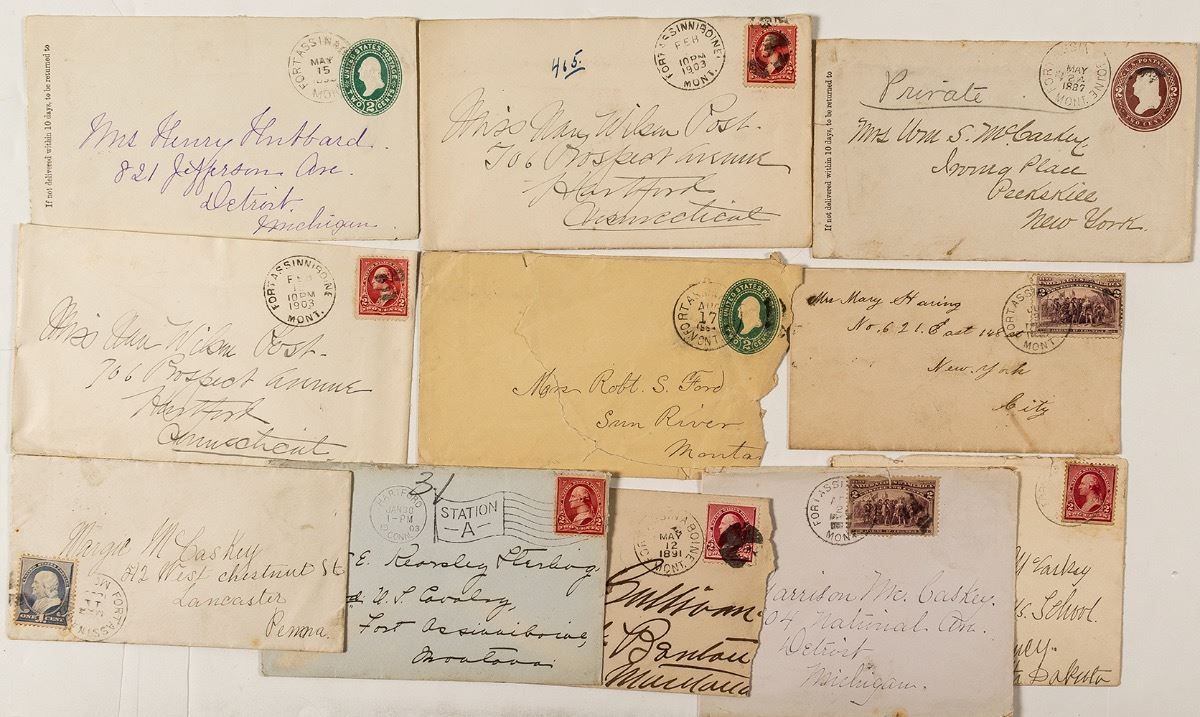 If not delivered within 10 days, to be returned to
FORT ASSINNIBOINE
MAY
15
MONT.
UNITED STATES POSTAGE
TWO 2 CENTS
Mrs Henry Hubbard.
821 Jefferson Ave.
Detroit.
Michigan.
465.
FORT ASSINNIBOINE
FEB
10PM
1903
MONT.
Miss Nan Wilson Post.
706 Prospect Avenue
Hartford
Connecticut
If not delivered within 10 days, to be returned to
Private
MAY
1887
MONT.
U.S. POSTAGE
TWO CENTS
Mrs Wm S. McCaskey.
Irving Place
Peekskill
New York.
FORT ASSINNIBOINE
FEB
10PM
1903
MONT.
Miss Nan Wilson Post.
706 Prospect Avenue
Hartford
Connecticut
FORT ASSIN
17
MONT.
UNITED STATES POSTAGE
TWO 2 CENTS
Mrs Robt. S. Ford
Sun River
Monta
Mrs Mary Haring
No. 621. East 148
New York
City
MONT
2
Margie McCaskey
212 West chestnut St
Lancaster
Penna.
FORT ASSIN
HARTFORD
JAN 30
1-PM
03
CONN.
STATION
-A-
E. Kearsley Sterling
U. S. Cavalry,
Fort Assinniboine,
Montana.
MAY
12
1891
MONT.
Sullivan
Benton
Montana
FORT ASSIN
MONT
2
Harrison McCaskey.
04 National Ave.
Detroit
Michigan.
McCaskey
School.
Dakota